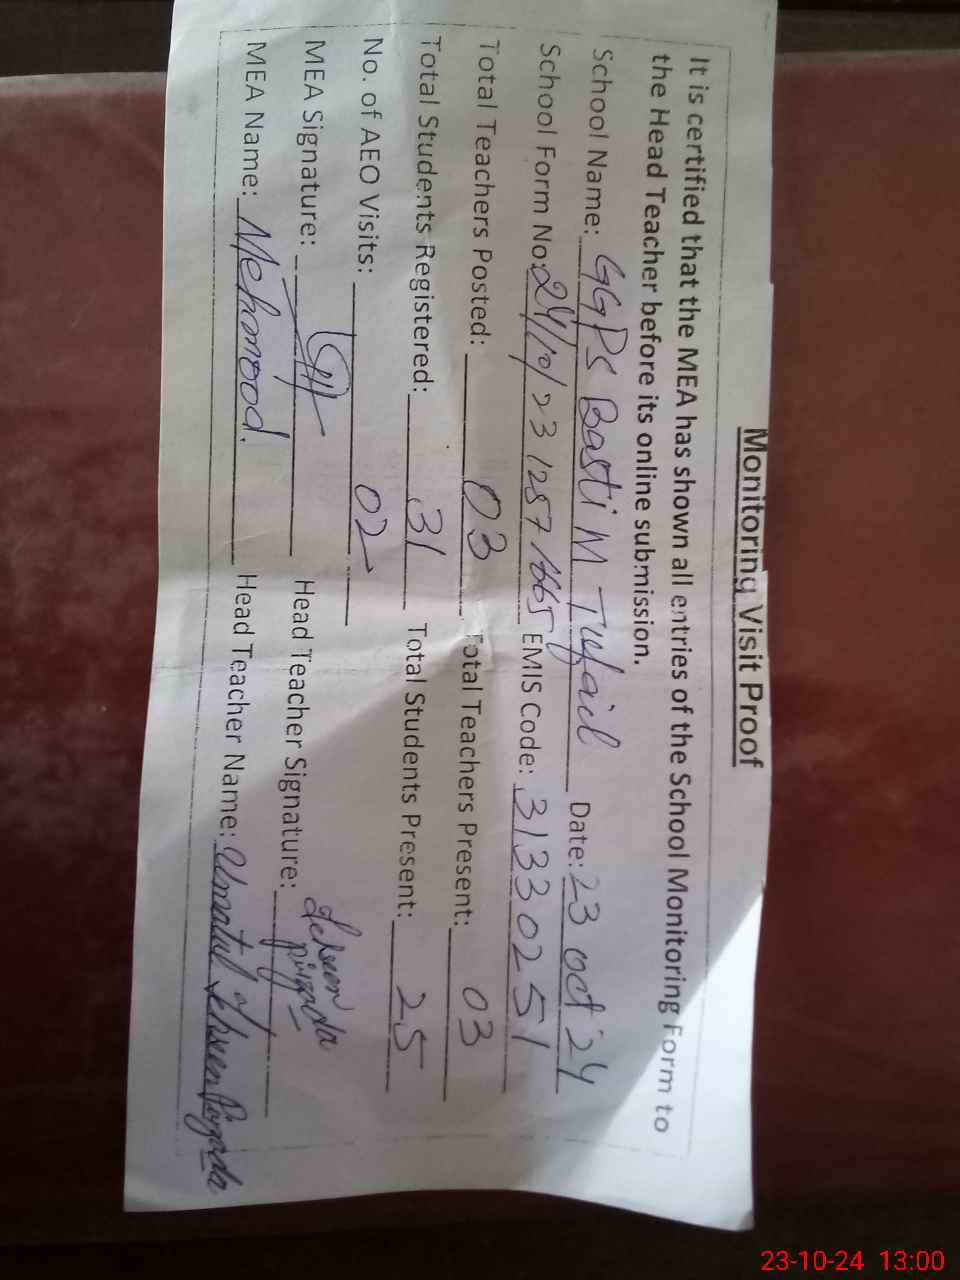 Monitoring Visit Proof
It is certified that the MEA has shown all entries of the School Monitoring Form to
the Head Teacher before its online submission.
School Name: GGPS Basti M Tufail Date: 23 Oct 24
School Form No: 24/10/23/1257/1665 EMIS Code: 31330251
Total Teachers Posted: 03 Total Teachers Present: 03
Total Students Registered: 31 Total Students Present: 25
No. of AEO Visits: 02
MEA Signature: Head Teacher Signature:
MEA Name: Mehmood. Head Teacher Name:
23-10-24 13:00